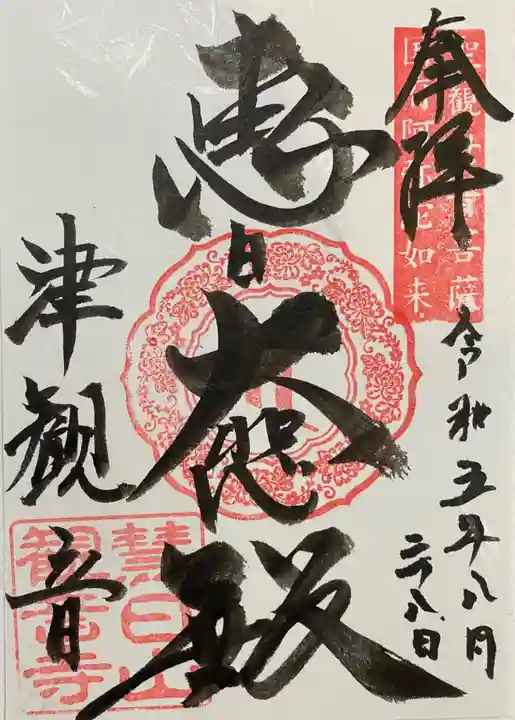 奉拝
聖観世音菩薩
国府阿弥陀如来
令和五年八月
二十八日
恵日大悲殿
津観音
慧日山
観音寺